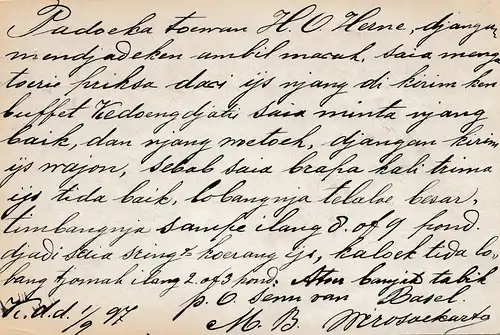 Padoeka toewan H. O. Herne, djangan
mendjadeken ambil marah, saia
toeris priksa dari ijs njang di kirim ken
buffet Kedoengdjati saia minta njang
baik, dan njang woetoeh, djangan kirim
ijs wajon, sebab saia brapa kali trima
ijs tida baik, lobangnja telaloe besar,
timbangnja sampe ilang 8. of 9 pond.
djadi saia sring2 koerang ijs, kaloek tida lo-
bang tjoemah ilang 2. of 3 pond: Atur banjak tabik
K.d.d. 1/9 97 p. O. Senn van Basel.
M. B. Wirosoekarto